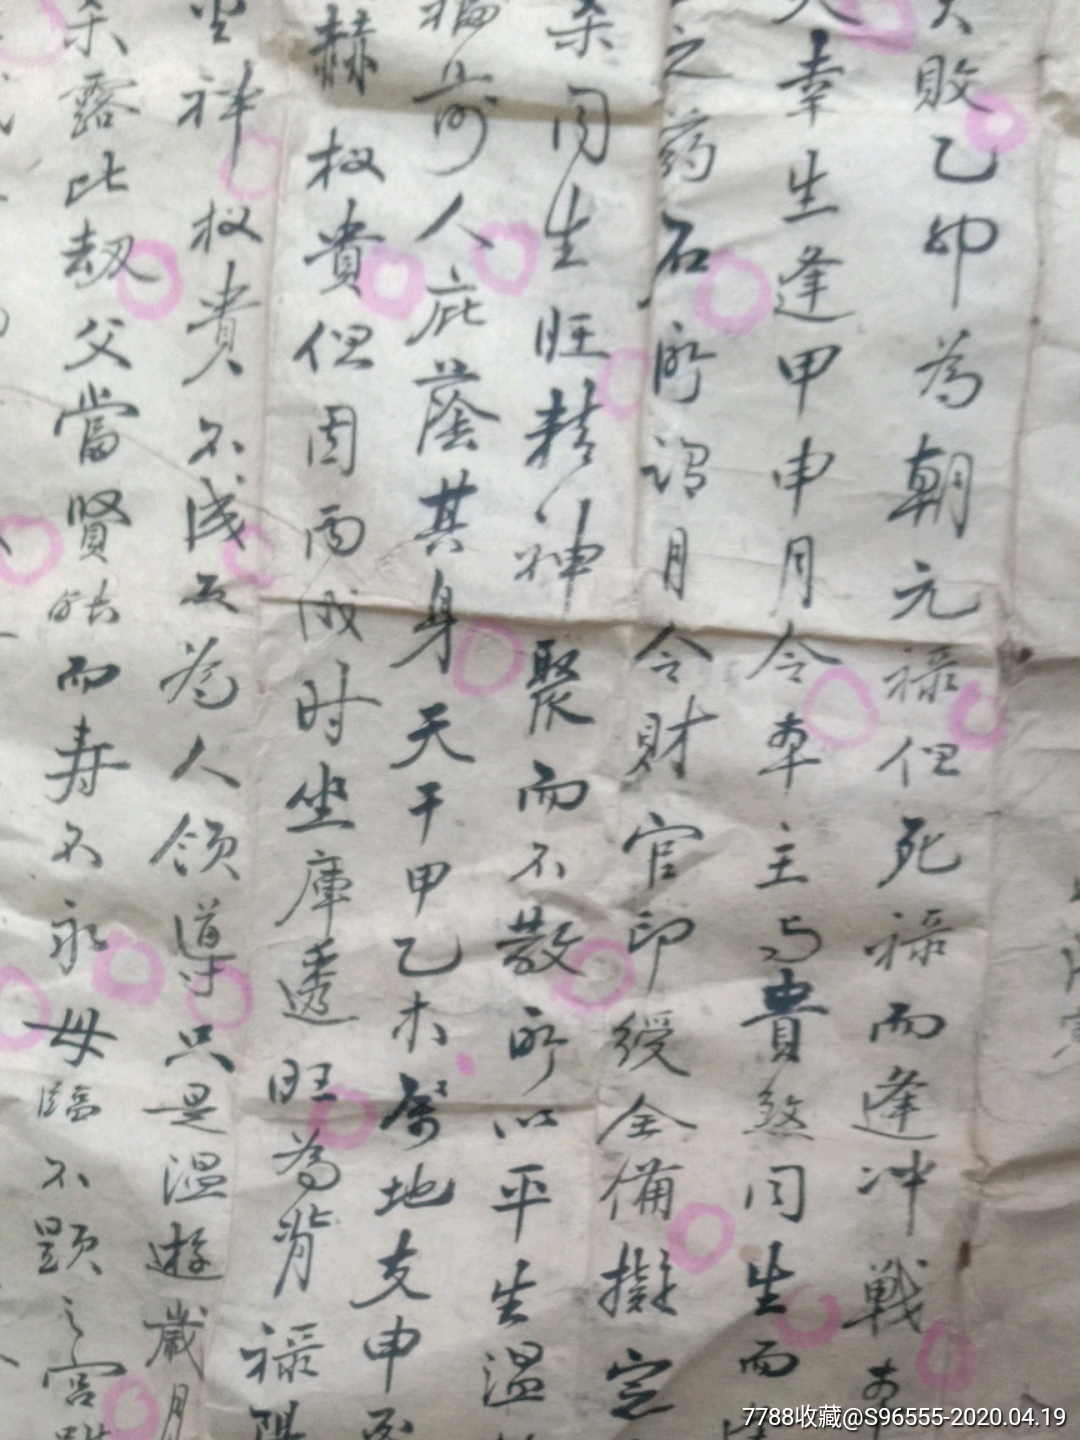 敗乙卯為朝元祿但死祿而逢冲戰
幸生逢甲申月令本主与貴煞同生而
之药石所谓月令財官印綬全備擬定
同生旺精神聚而不散所以平生温
人庇蔭其身天干甲乙木属地支申
赫权貴但因而成时坐庫透旺為背祿陽
坐祥权貴不成反為人領導只是温遊歲月
杀露此劫父當賢能而寿不永母臨不顯之宫
7788收藏@S96555-2020.04.19